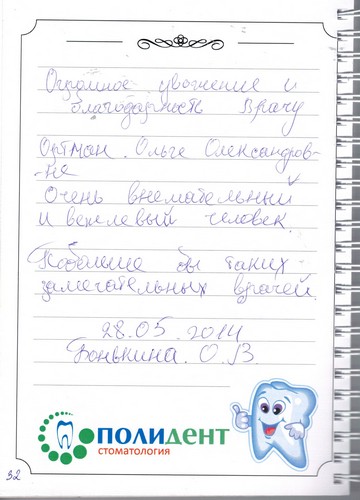 Огромное уважение и
благодарность врачу
Ортман Ольге Олександров-
не
Очень внемательный
и вежлевый человек.
Побольше бы таких
замечательных врачей.
28.05.2014
Бонькина. О.В.
ПОЛИДЕНТ
СТОМАТОЛОГИЯ
32